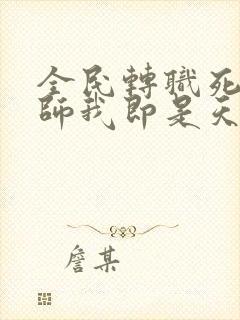 全民轉職死
師我即是天
詹某